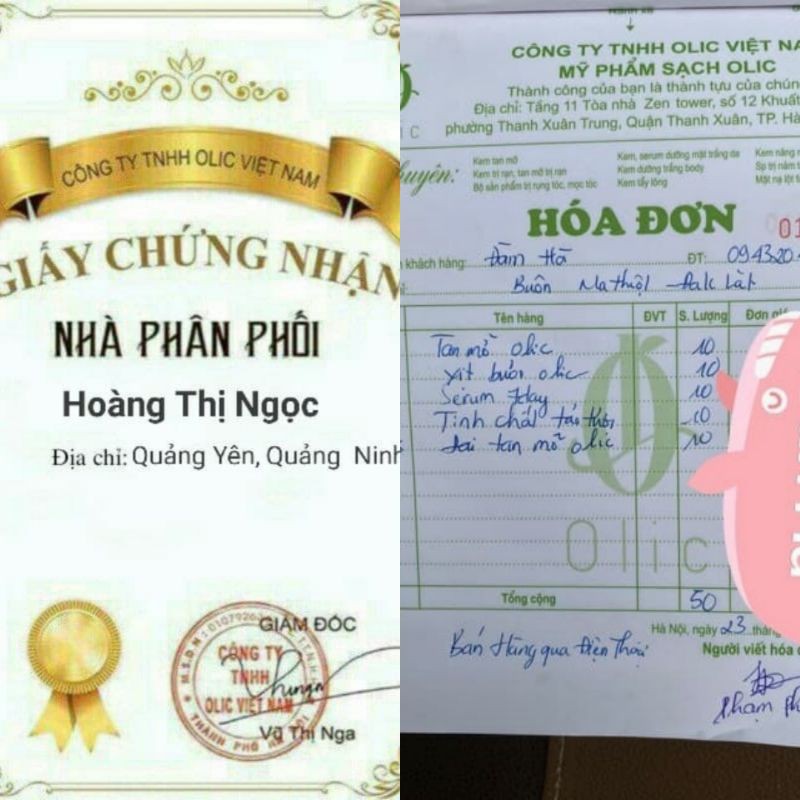 CÔNG TY TNHH OLIC VIỆT NAM
GIẤY CHỨNG NHẬN
NHÀ PHÂN PHỐI
Hoàng Thị Ngọc
Địa chỉ: Quảng Yên, Quảng Ninh
GIÁM ĐỐC
CÔNG TY
TNHH
OLIC VIỆT NAM
THÀNH PHỐ HÀ NỘI
Vũ Thị Nga
CÔNG TY TNHH OLIC VIỆT NA
MỸ PHẨM SẠCH OLIC
Thành công của bạn là thành tựu của chún
Địa chỉ: Tầng 11 Tòa nhà Zen tower, số 12 Khuất
phường Thanh Xuân Trung, Quận Thanh Xuân, TP. Hà
huyên:
Kem tan mỡ
Kem trị rạn, tan mỡ trị rạn
Bộ sản phẩm trị rụng tóc, mọc tóc
Kem, serum dưỡng mặt trắng da
Kem dưỡng trắng body
Kem tẩy lông
Kem nâng
Sp trị nám
Mặt nạ lột
HÓA ĐƠN
01
khách hàng: Đàm Hà ĐT: 094320
Buôn Ma thuột Đak Lăk
Tên hàng ĐVT S. Lượng Đơn giá
Tan mỡ olic 10
xịt bưởi olic 10
Serum 7day 10
Tinh chất 10
đai tan mỡ olic 10
Olic
Tổng cộng 50
Hà Nội, ngày 23 tháng
Bán Hàng qua Điện Thoại
Người viết hóa
Phạm